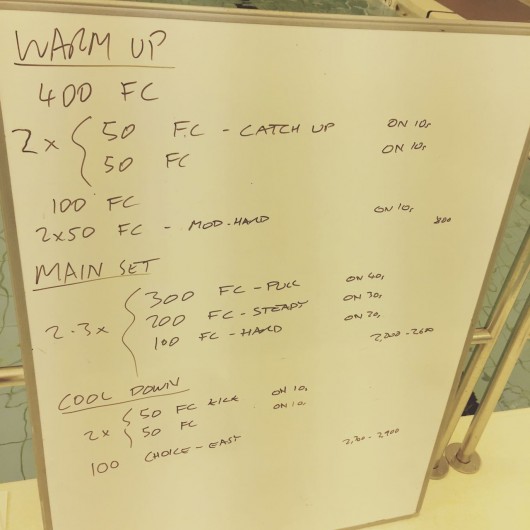 WARM UP
400 FC
2x { 50 FC - CATCH UP ON 10s
50 FC ON 10s
100 FC
2x50 FC - MOD-HARD ON 10s
800
MAIN SET
2-3x { 300 FC - PULL ON 40s
200 FC - STEADY ON 30s
100 FC - HARD ON 20s
2,000 - 2600
COOL DOWN
2x { 50 FC KICK ON 10s
50 FC ON 10s
100 CHOICE - EASY
2,300 - 2,900